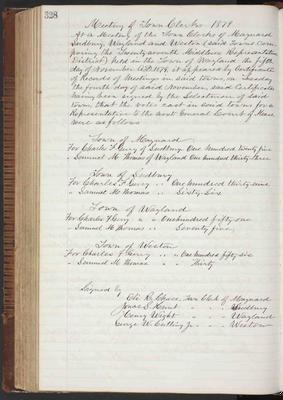 328
Meeting of Town Clerks 1879
At a Meeting of the Town Clerks of Maynard
Sudbury, Wayland and Weston (said Towns com-
posing the Twenty seventh Middlesex Representative
District) held in the Town of Wayland the fifth
day of November A.D. 1879, it appeared by Certificates
of Records of Meetings in said towns, on Tuesday
the fourth day of said November, said Certificates
having been signed by the Selectmen of said
towns, that the votes cast in said towns for a
Representative to the next General Court of Mass
were as follows
Town of Maynard
For Charles F. Gerry of Sudbury One hundred Twenty five
" Samuel M. Thomas of Wayland One hundred thirty three
Town of Sudbury
For Charles F. Gerry " " One hundred thirty nine
" Samuel M. Thomas " " Sixty Six
Town of Wayland
For Charles F. Gerry " " One hundred fifty one
" Samuel M. Thomas " " Seventy five
Town of Weston
For Charles F. Gerry " " One hundred fifty six
" Samuel M. Thomas " " Thirty
Signed by
Chase, Town Clerk of Maynard
Jonas S. Hunt " " " Sudbury
Henry Wight " " " Wayland
George W. Cutting Jr " " " Weston